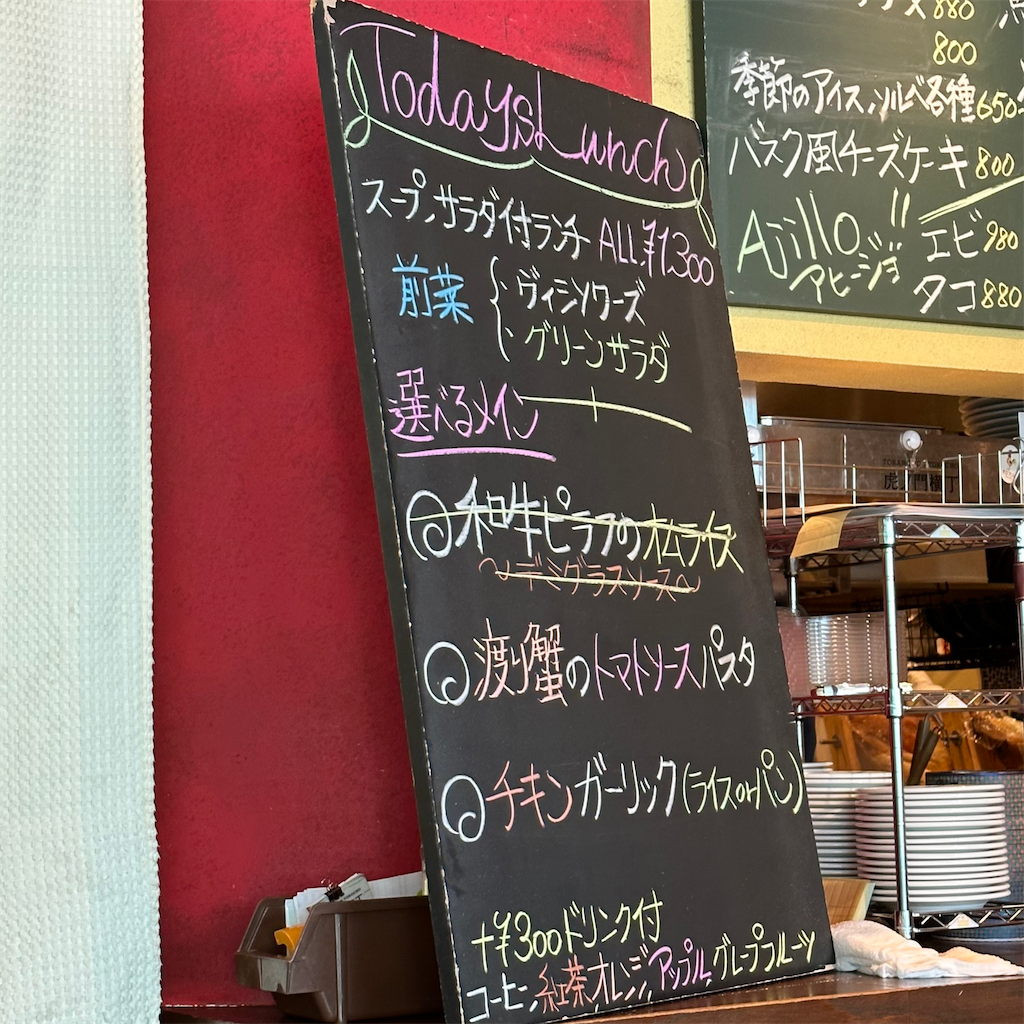 Today's Lunch
スープ、サラダ付ランチ ALL ¥1,300
前菜
・ヴィシソワーズ
・グリーンサラダ
選べるメイン
和牛ピラフのオムライス
〜デミグラスソース〜
渡り蟹のトマトソースパスタ
チキンガーリック(ライスorパン)
+¥300ドリンク付
コーヒー、紅茶、オレンジ、アップル、グレープフルーツ
880
800
季節のアイス、ソルベ各種 650
バスク風チーズケーキ 800
Ajillo!!
アヒージョ
エビ 980
タコ 880